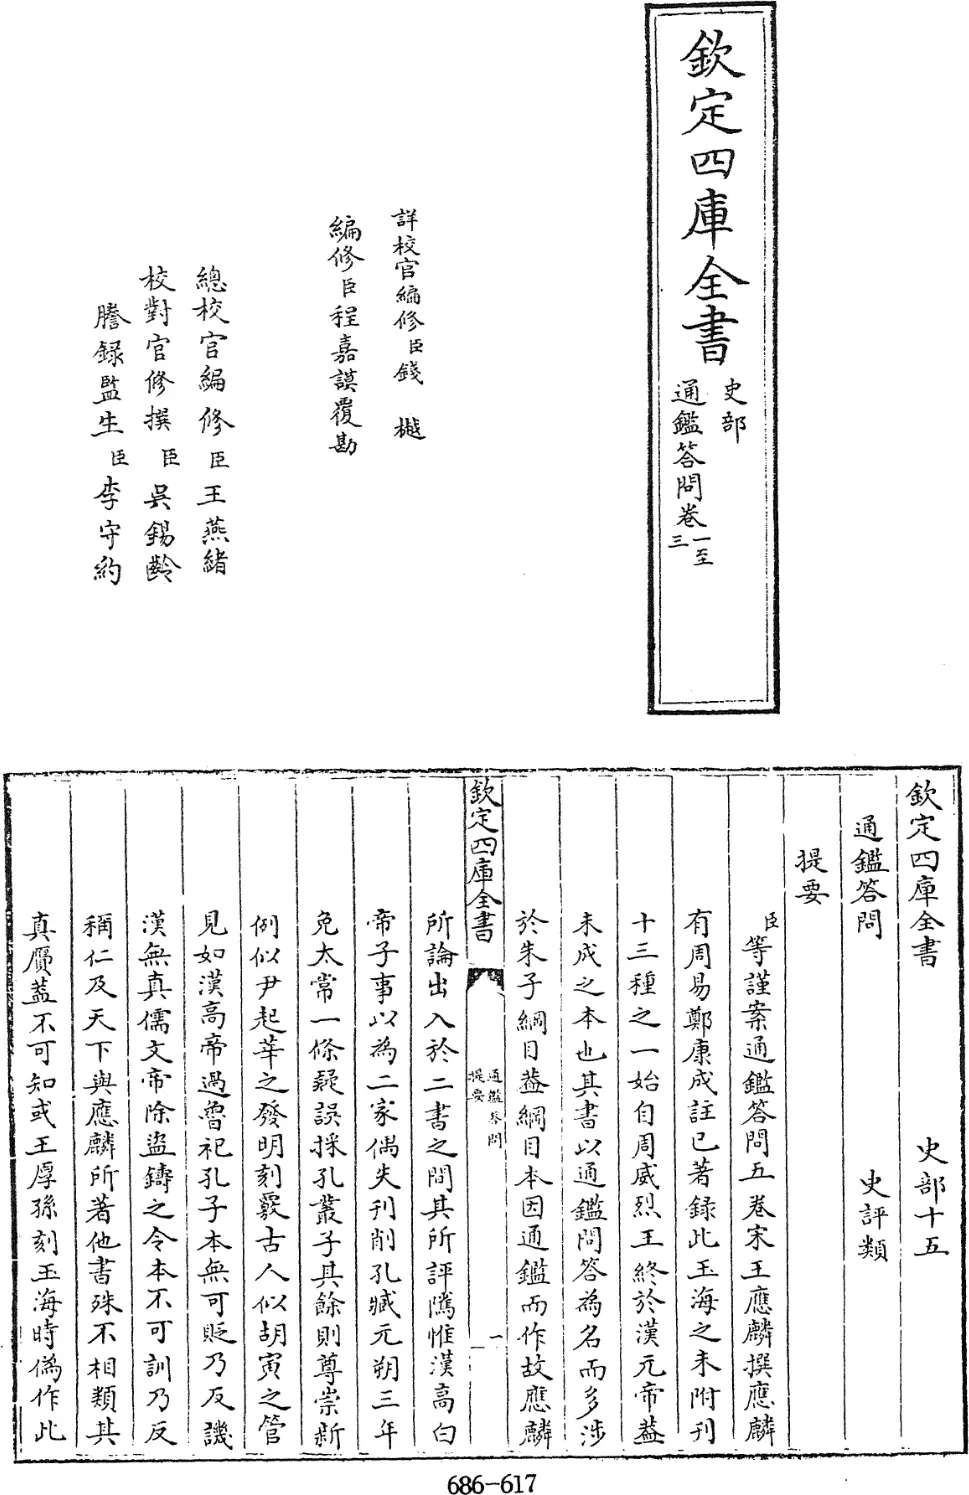 欽定四庫全書
史部
通鑑答問卷一至三
詳校官編修臣錢樾
編修臣程嘉謨覆勘
總校官編修臣王燕緒
校對官修撰臣吳錫齡
謄錄監生臣李守約
欽定四庫全書 史部十五
通鑑答問 史評類
提要
臣等謹案通鑑答問五卷宋王應麟撰應麟
有周易鄭康成註已著録此玉海之末附刊
十三種之一始自周威烈王終於漢元帝葢
未成之本也其書以通鑑問答為名而多涉
於朱子綱目葢綱目本因通鑑而作故應麟
欽定四庫全書
通鑑答問
提要
一
所論出入於二書之間其所評隲惟漢高白
帝子事以為二家偶失刊削孔臧元朔三年
免太常一條疑誤採孔叢子其餘則尊崇新
例似尹起莘之發明刻覈古人似胡寅之管
見如漢高帝過魯祀孔子本無可貶乃反譏
漢無真儒文帝除盜鑄之令本不可訓乃反
稱仁及天下與應麟所著他書殊不相類其
真贋葢不可知或王厚孫刻玉海時偽作此
686-617